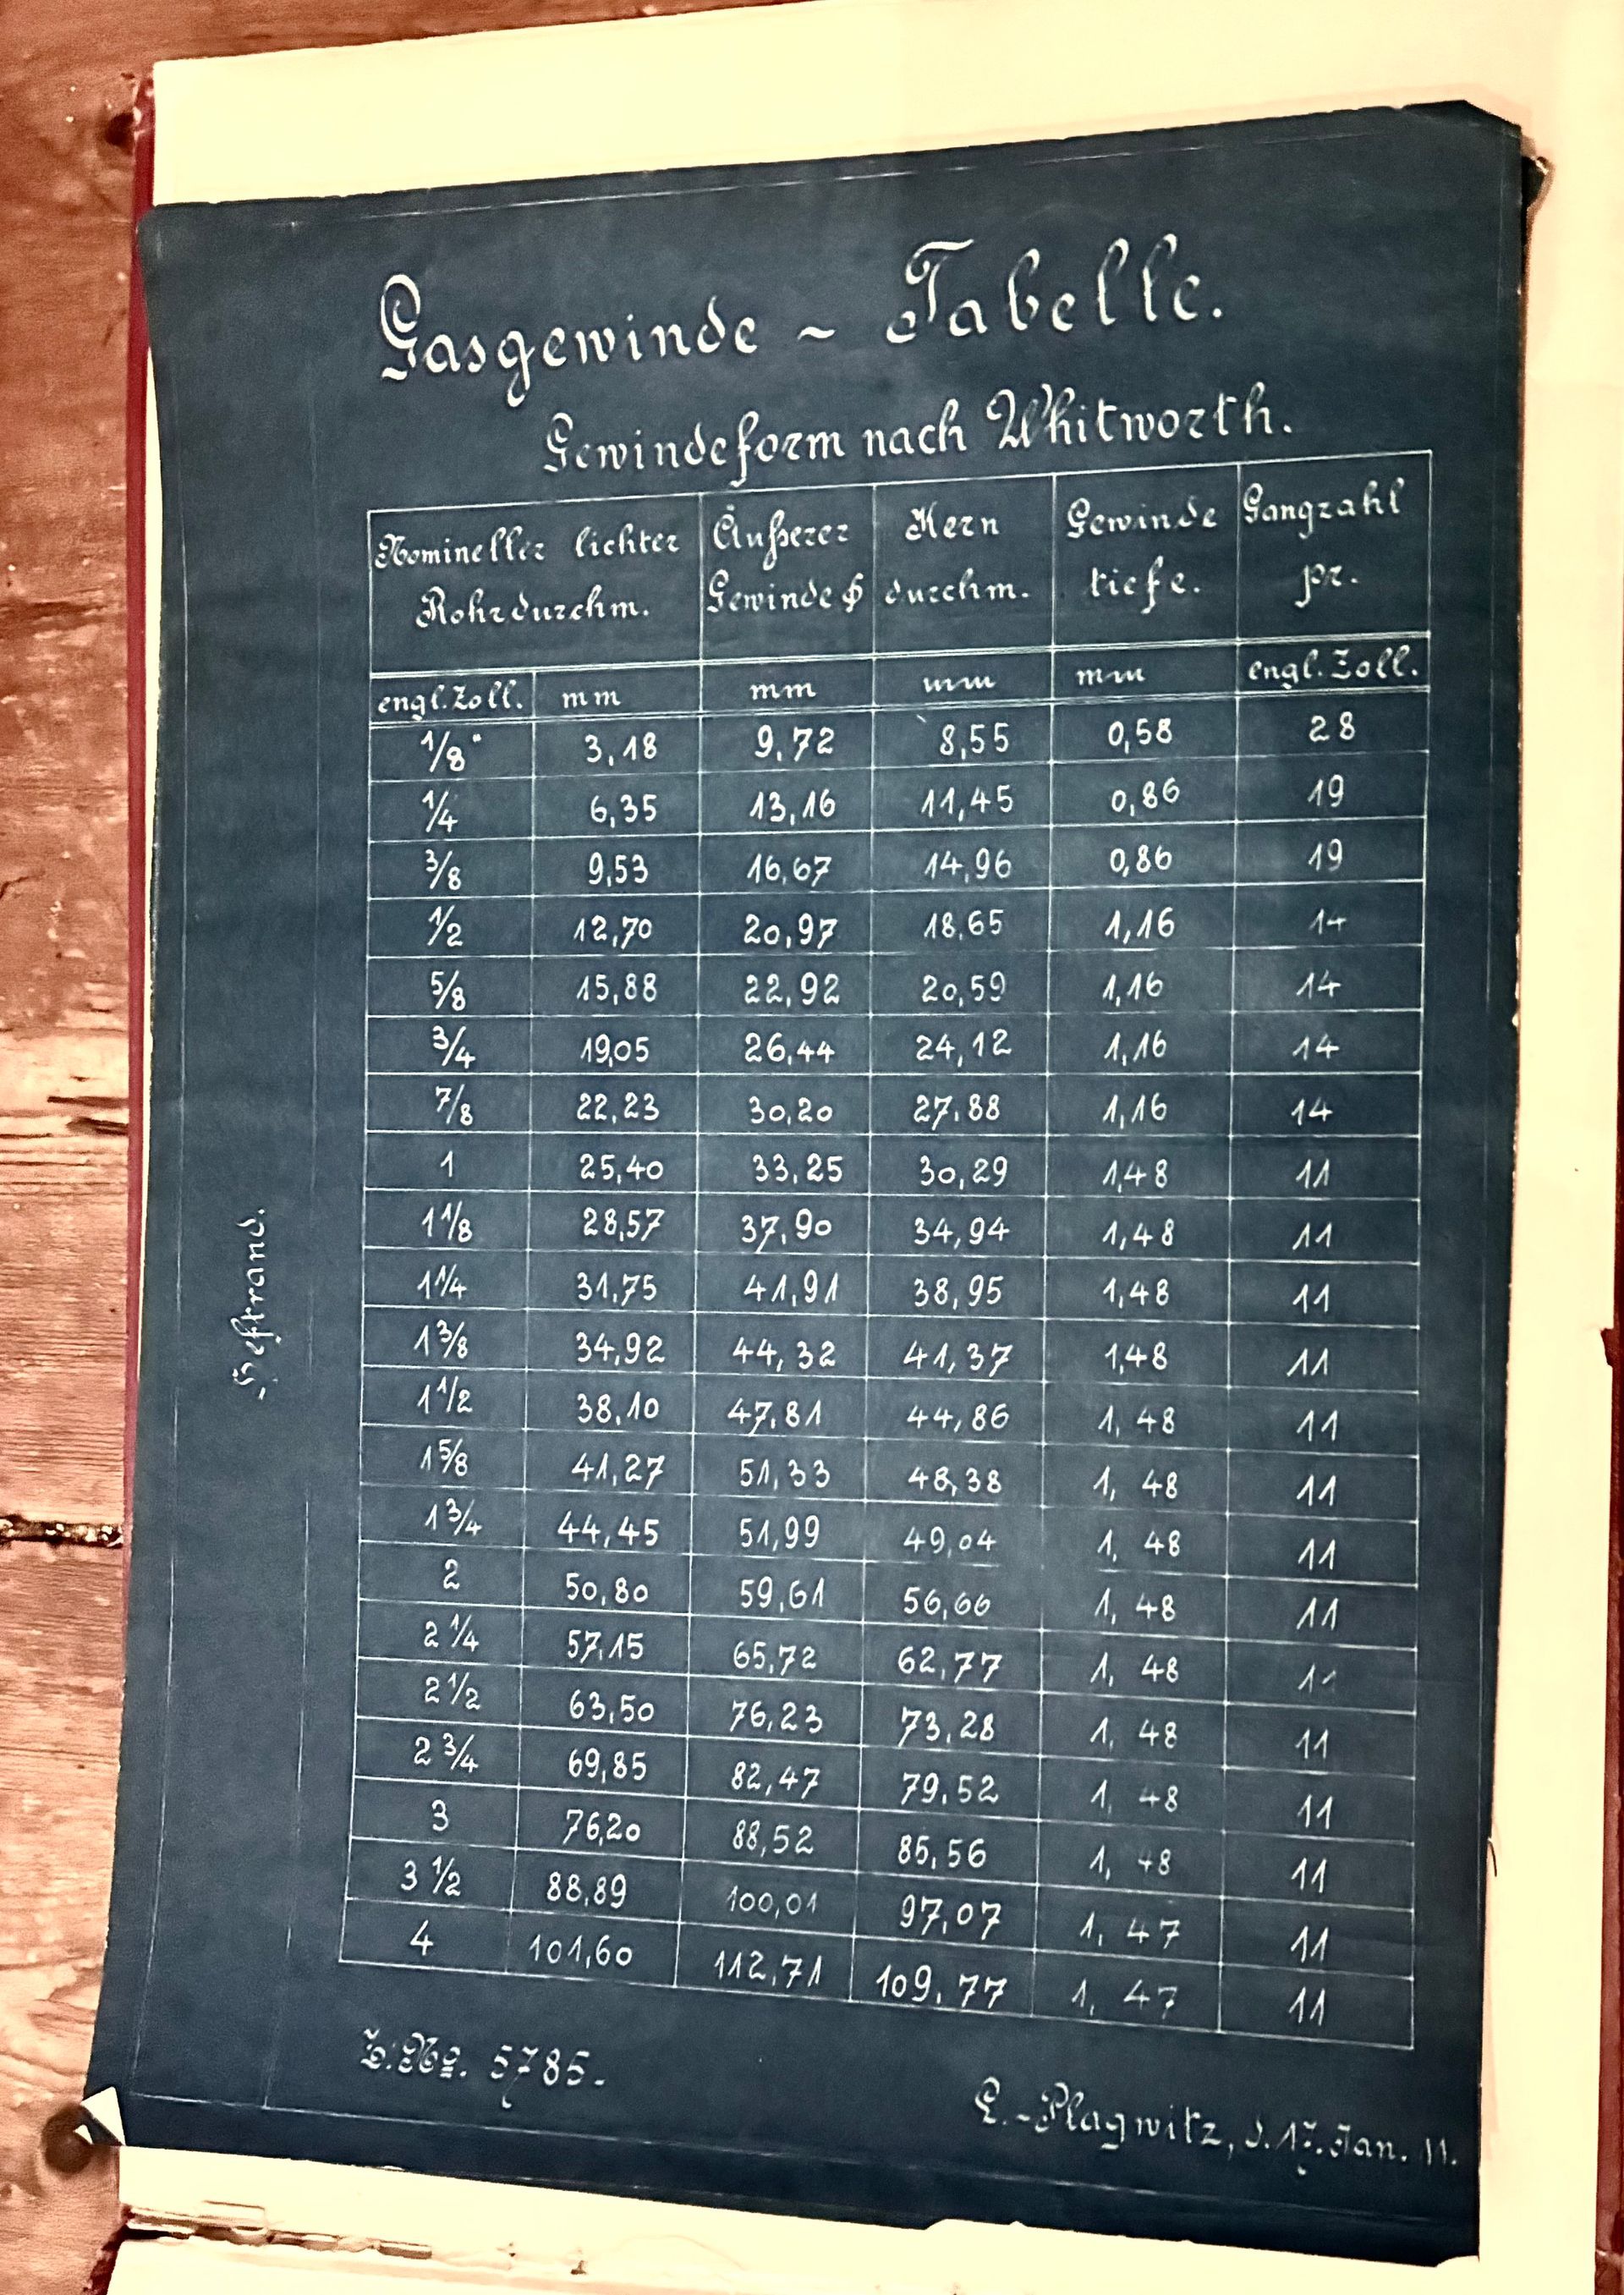 Gasgewinde ~ Tabelle.
Gewindeform nach Whitworth.
Nomineller lichter Rohrdurchm. | Äußerer Gewinde ϕ | Kern durchm. | Gewinde tiefe. | Gangzahl pr.
engl. Zoll. | mm | mm | mm | mm | engl. Zoll.
1/8" | 3,18 | 9,72 | 8,55 | 0,58 | 28
1/4 | 6,35 | 13,16 | 11,45 | 0,86 | 19
3/8 | 9,53 | 16,67 | 14,96 | 0,86 | 19
1/2 | 12,70 | 20,97 | 18,65 | 1,16 | 14
5/8 | 15,88 | 22,92 | 20,59 | 1,16 | 14
3/4 | 19,05 | 26,44 | 24,12 | 1,16 | 14
7/8 | 22,23 | 30,20 | 27,88 | 1,16 | 14
1 | 25,40 | 33,25 | 30,29 | 1,48 | 11
1 1/8 | 28,57 | 37,90 | 34,94 | 1,48 | 11
1 1/4 | 31,75 | 41,91 | 38,95 | 1,48 | 11
1 3/8 | 34,92 | 44,32 | 41,37 | 1,48 | 11
1 1/2 | 38,10 | 47,81 | 44,86 | 1,48 | 11
1 5/8 | 41,27 | 51,33 | 48,38 | 1,48 | 11
1 3/4 | 44,45 | 51,99 | 49,04 | 1,48 | 11
2 | 50,80 | 59,61 | 56,66 | 1,48 | 11
2 1/4 | 57,15 | 65,72 | 62,77 | 1,48 | 11
2 1/2 | 63,50 | 76,23 | 73,28 | 1,48 | 11
2 3/4 | 69,85 | 82,47 | 79,52 | 1,48 | 11
3 | 76,20 | 88,52 | 85,56 | 1,48 | 11
3 1/2 | 88,89 | 100,01 | 97,07 | 1,47 | 11
4 | 101,60 | 112,71 | 109,77 | 1,47 | 11
Heftrand.
Z. No. 5785.
L.-Plagwitz, d. 17. Jan. 11.